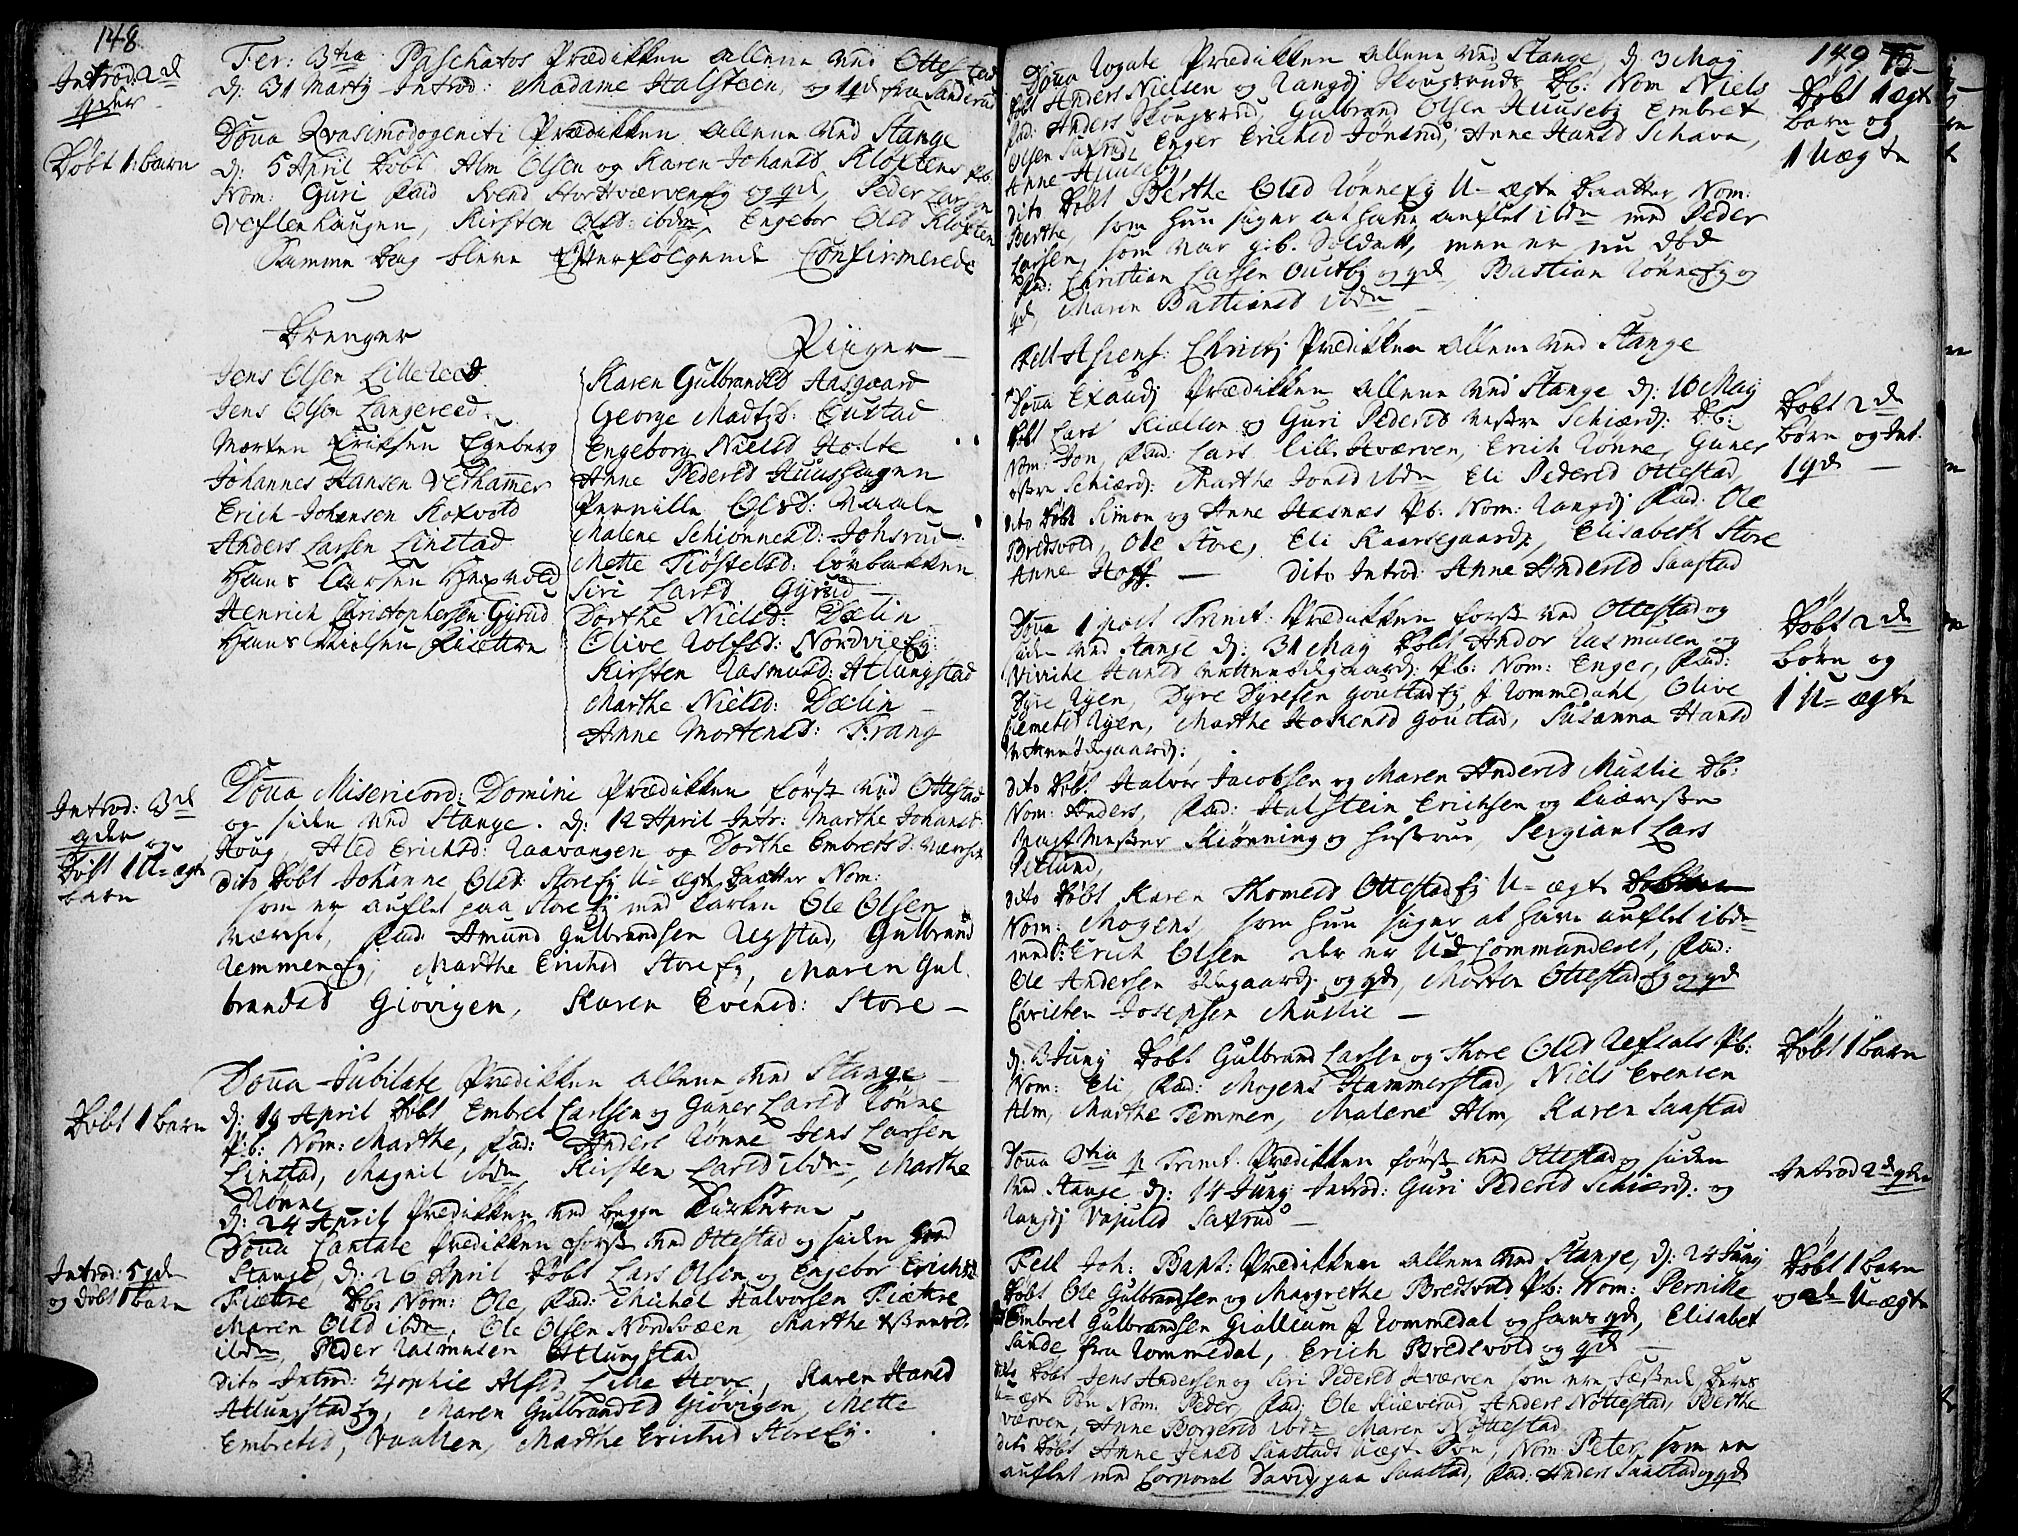 148
Introd: 2de
qder
Fer: 3tia Paschatos Prædikken allene ved Ottestad
d: 31 Martij Introd: Madame Halsteen, og 1 qd fra Sanderud
Døbt 1: barn
Dom̄a Qvasimodogeniti Prædikken allene ved Stange
d: 5 April Døbt Alm Olsen og Karen Johansd Kloftens Pb:
Nom: Guri Fad Svend StorHværven Ej og qd, Peder Larsen
Vestlenhaugen, Kirsten Olsd: ibdm, Engebor Olsd Kloften
Samme Dag bleve Efterfølgende Confirmerede
Drenger
Jens Olsen Lillereed
Jens Olsen Langereed
Morten Ericksen Egeberg
Johannes Hansen Vedhammer
Erich Johansen Rokvold
Anders Larsen Linstad
Hans Larsen Hexvold
Henrich Christophersen Gyrud
Hans Nielsen Fiættre
Piiger
Karen Gulbrandsd Aasgaard
George Madtzd: Custad
Engeborg Nielsd Holte
Anne Pedersd Huushagen
Pernille Olsd: Vaale
Malene Schiønnesd: Johsrud
Mette Tiøstelsd: Lørbakken
Siri Larsd Gyrud
Dorthe Nielsd: Dælin
Olive Rolfsd: Nordvie Ej
Kirsten Rasmusd: Atlungstad
Marthe Nielsd: Dælin
Anne Mortensd: Frang
Introd: 3de
qder og
Døbt 1 U-ægt
barn
Dom̄a Misericord: Domini Prædikken først ved Ottestad
og siden ved Stange. d: 12 April Intr: Marthe Johansd
Houg, Aled Erichsd: Raavangen og Dorthe Embretsd: Værset
dito Døbt Johanne Olsd: Store Ej U-ægt Daatter Nom:
som er auflet paa Store Ej med Carlen Ole Olsen
Værset, Fad: Amund Gulbrandsen Ulstad, Gulbrand
Remmen Ej, Marthe Erichsd Store Ej, Maren Gul
brandsd Giøvigen, Karen Evensd: Store
Dom̄a Jubilate Prædikken allene ved Stange
Døbt 1 barn
d: 19 April Døbt Embret Carlsen og Guner Larsd Rønne
Pb: Nom: Marthe, Fad: Anders Rønne, Jens Larsen
Linstad, Magnil ibdm, Kirsten Larsd ibdm, Marthe
Rønne
d: 24 April Prædikken ved begge Kirkerne
Introd: 5 qder
og døbt 1 barn
Dom̄a Cantate Prædikken først ved Ottestad og siden ved
Stange, d: 26 April Døbt Lars Olsen og Engebor Erichsd
Fiættre Db: Nom: Ole, Fad: Michel Halvorsen Fiættre
Maren Olsd ibdm, Ole Olsen Nordsveen, Marthe
ibdm, Peder Rasmusen Atlungstad
dito Introd: Zophie Alfsd Lille Hove, Karen Hansd
Atlungstad Ej, Maren Gulbrandsd Giøvigen, Mette
Embretsd, Vaallen, Marthe Erichsd Store Ej.
149
Dom̄a Rogate Prædikken allene ved Stange d: 3 May
Døbt Anders Nielsen og Rangdj Skougsruds Db: Nom Niels
Fad: Anders Skougsrud, Gulbrand Olsen Huuseby Embret
Olsen Saxrud, Enger Erichsd Jønsrud, Anne Hansd Schava,
Anne Huuseby
Døbt 1 ægte
barn og
1 Uægte
dito Døbt Berthe Olsd Rønne Ej U-ægte Daatter, Nom:
Berthe, som hun siger at have auflet ibdm med Peder
Larsen, som var gib. Soldat, men er nu død
Fad: Christian Larsen Oustby og qd, Bastian Rønne Ej og
qd, Maren Bastiansd ibdm
Fest Ascens: Christj Prædikken allene ved Stange
Dom̄a Exaudj Prædikken allene ved Stange d: 10 May
Døbt Lars Kiellen og Guri Pedersd vestre Schiærdj: Db:
Nom: Jon, Fad: Lars Lille Hværven, Erich Rønne, Guner
østre Schiærdj: Marthe Jonsd ibdm Eli Pedersd Ottestad
Døbt 2de
børn og Int.
1 qd
dito Døbt Simon og Anne Hasnæs Pb: Nom: Rangdj Fad: Ole
Bredsvold, Ole Store, Eli Kaarsegaard, Elisabeth Store
Anne Hoff — dito Introd: Anne Andersd Saastad
Dom̄a 1 post Trinit: Prædikken først ved Ottestad og
siden ved Stange d: 31 May Døbt Andor Rasmusen og
Wiviche Hansd Pb: Nom: Enger, Fad:
Dyre Ryen, Dyre Dyresen Goustad Ej f Rommedahl, Olive
Ryen, Marthe Hokensd Goustad, Susanna Hansd
Døbt 2de
børn og
1 U-ægte
dito Døbt Halvor Jacobsen og Maren Andersd Mustie Db:
Nom: Anders, Fad: Halstein Erichsen og Kiærsten
Skiønning og Hustrue, Sergiant Lars
dito Døbt Karen Thomesd Ottestad Ej U-ægte
Nom: Mogens som hun siger at have auflet ibdm
med Erich Olsen der er Ud Commanderet, Fad:
Ole Andersen og qd, Morten Ottestad Ej og qd
Christen Josephsen Mustie
d: 3 Junj Døbt Gulbrand Larsen og Thore Olsd Refsals Pb:
Nom: Eli Fad: Mogens Hammerstad, Niels Evensen
Alm, Marthe Temmen, Malene Alm, Karen Saastad
Døbt 1 barn
Dom̄a 3tia p Trinit: Prædikken først ved Ottestad og siden
ved Stange d: 14 Junj Introd: Guri Pedersd Schiærdj: og
Rangdj Saxrud
Introd 2de qder
Fest Joh: Bapt: Prædikken allene ved Stange, d: 24 Junj
Døbt Ole Gulbrandsen og Margrethe Bredsvold Pb: Nom: Pernille
Embret Gulbrandsen Giallum f Rommedal og hans qd, Elisabet
Sande fra Rommedal, Erich Bredsvold og qd
Døbt 1 barn
og 2de U-ægte
dito Døbt Jens Andersen og Siri Pedersd Hværven som ere fæstede deres
U-ægt Søn Nom: Peder, Fad: Ole Kiæverud, Anders Nøttestad, Berthe
værven, Anne Borgersd ibdm, Maren Nøttestad
dito Døbt Anne Jensd Saastads Uægt Søn, Nom: Peter, som er
auflet med Corporal David paa Saastad, Fad: Anders Saastad og qd